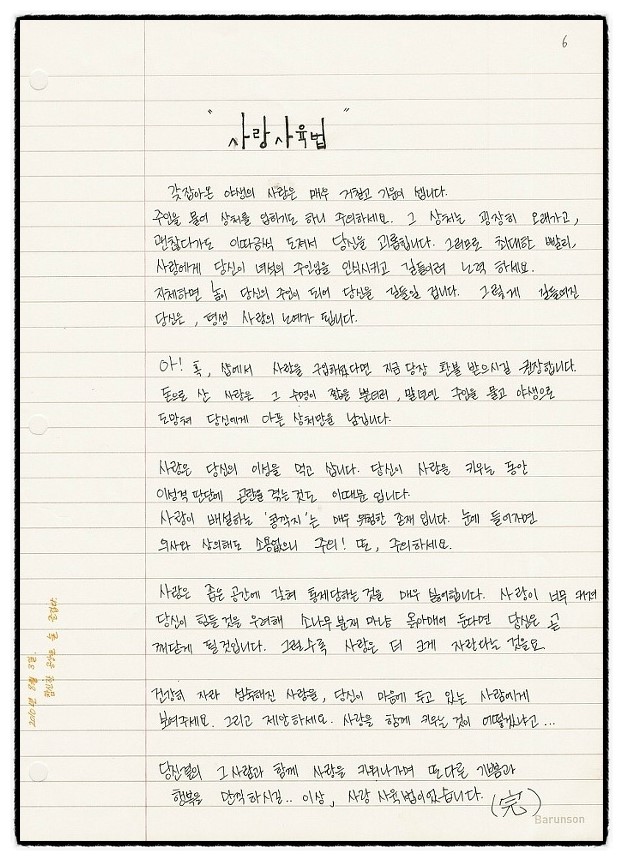 6
" 사랑 사육법 "
갓 잡아온 야생의 사랑은 매우 거칠고 기운이 쎕니다.
주인을 물어 상처를 입히기도 하니 주의하세요. 그 상처는 굉장히 오래가고,
괜찮다가도 이따금씩 도져서 당신을 괴롭힙니다. 그러므로 최대한 빨리,
사랑에게 당신이 녀석의 주인임을 인식시키고 길들이려 노력 하세요.
지체하면 놈이 당신의 주인이 되어 당신을 길들일 겁니다. 그렇게 길들여진
당신은, 평생 사랑의 노예가 됩니다.
아! 혹, 샵에서 사랑을 구입하셨다면 지금 당장 환불 받으시길 권장합니다.
돈으로 산 사랑은 그 수명이 짧을 뿐더러, 말년엔 주인을 물고 야생으로
도망쳐 당신에게 다른 상처만을 남깁니다.
사랑은 당신의 이성을 먹고 삽니다. 당신이 사랑을 키우는 동안
이성적 판단에 곤란을 겪는 것도 이때문 입니다.
사랑이 배설하는 '콩깍지'는 매우 위험한 존재 입니다. 눈에 들어가면
의사와 상의해도 소용없으니 주의! 또, 주의하세요.
사랑은 좁은 공간에 갇혀 통제당하는 것을 매우 싫어합니다. 사랑이 너무 커져
당신이 힘들 것을 우려해 소나무 분재 마냥 옭아매어 둔다면 당신은 곧
깨닫게 될 것입니다. 그럴수록 사랑은 더 크게 자란다는 것을요.
건강히 자라 성숙해진 사랑을, 당신이 마음에 두고 있는 사람에게
보여주세요. 그리고 제안하세요. 사랑을 함께 키우는 것이 어떻겠냐고...
당신 곁의 그 사람과 함께 사랑을 키워나가며 또 다른 기쁨과
행복을 만끽하시길.. 이상, 사랑 사육법이었습니다. (完)
Barunson